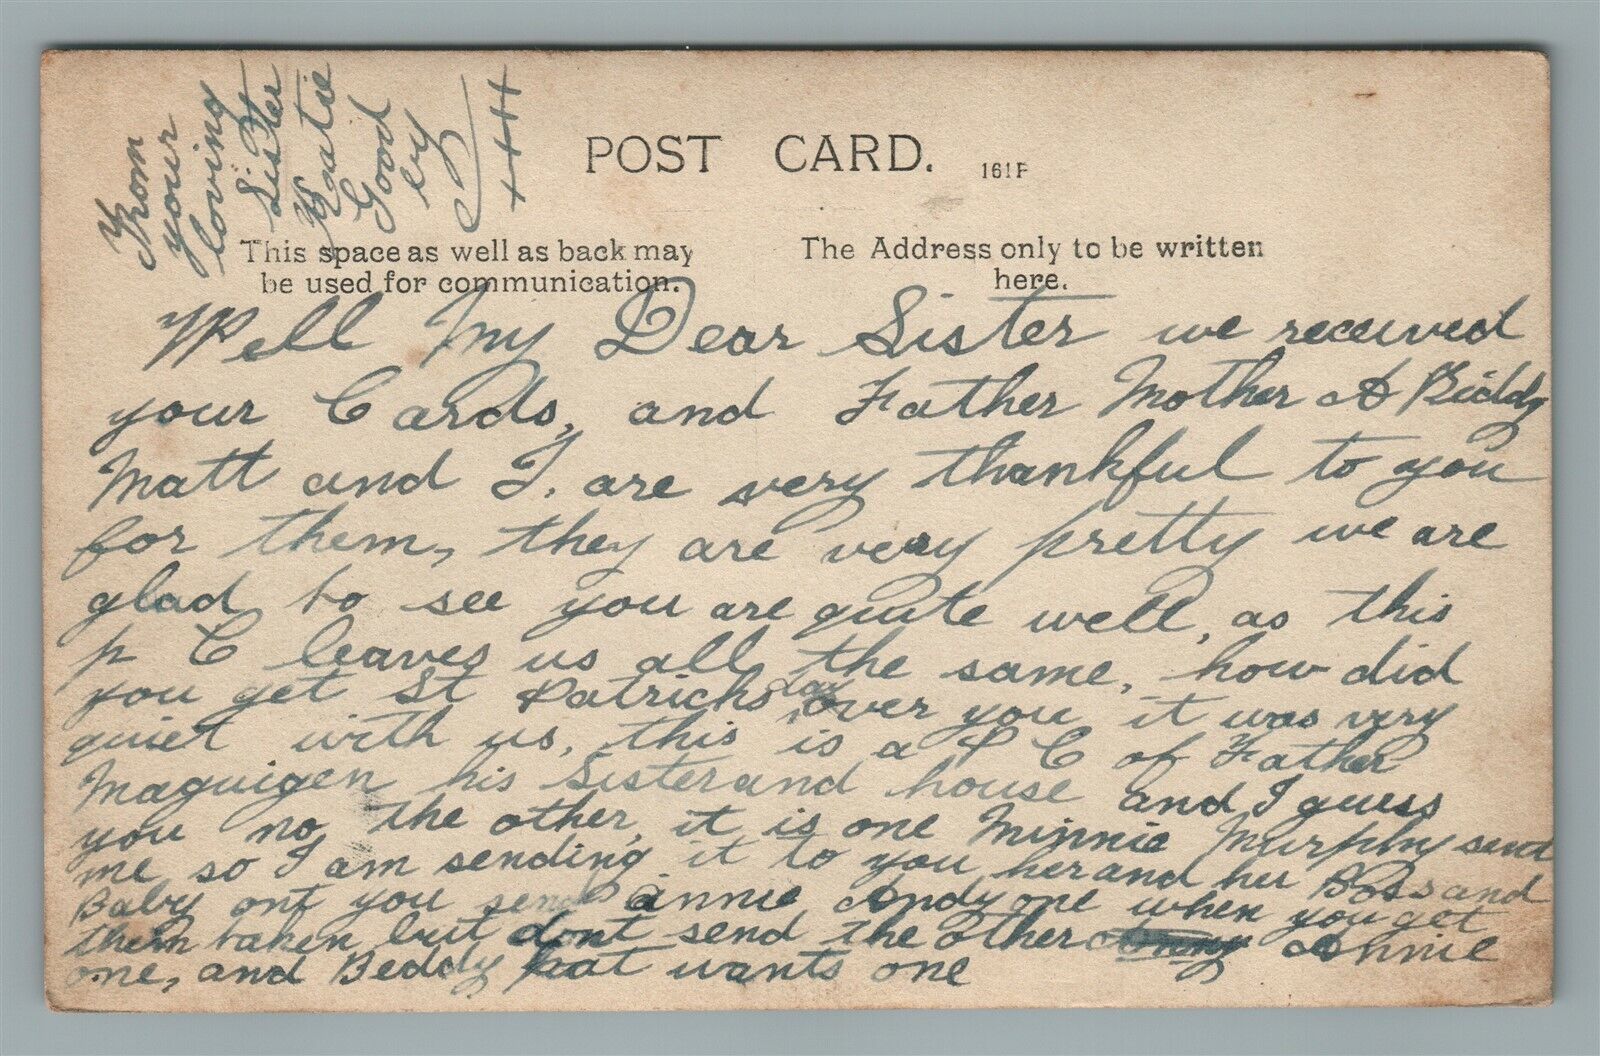 From
your
loving
Sister
Katie
Good
by
++++
POST CARD. 161P
This space as well as back may
be used for communication.
The Address only to be written
here.
Well My Dear Sister we received
your Cards, and Father Mother A Biddy
Matt and I, are very thankful to you
for them, they are very pretty we are
glad to see you are quite well, as this
p C leaves us all the same, how did
you get St Patricks day over you it was very
quiet with us, this is a P C of Father
Maguigen his Sister and house and I guess
you no the other, it is one Minnie Murphy send
me so I am sending it to you her and her Boss and
Baby ont you send annie Andy one when you get
them taken but dont send the other Annie
one, and Beddy pat wants one